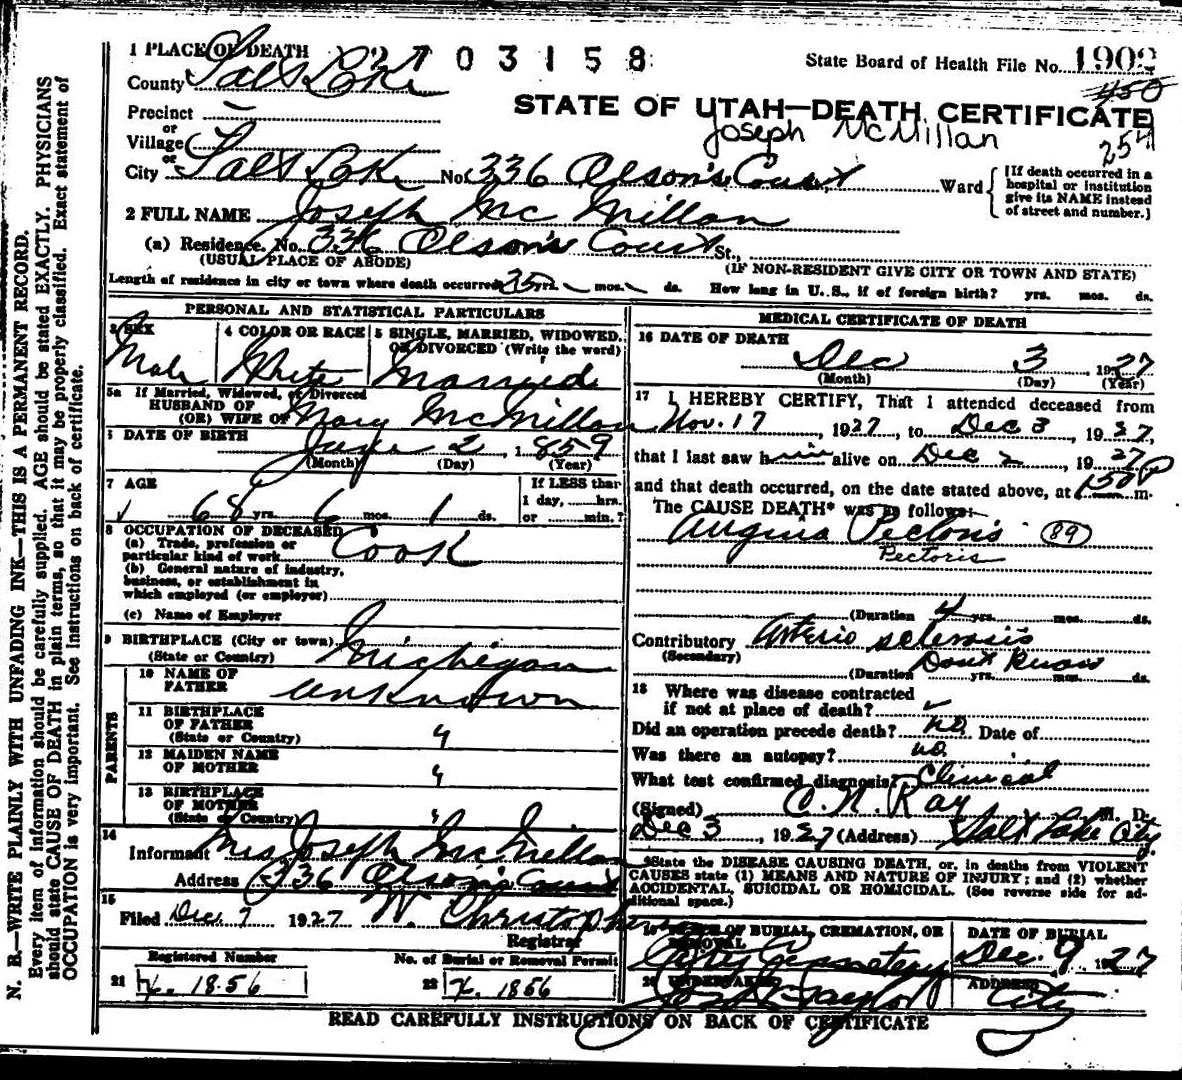 1 PLACE OF DEATH 2703158 State Board of Health File No. 1909
County Salt Lake 450
STATE OF UTAH—DEATH CERTIFICATE
Precinct —
Joseph McMillan 254
or
Village
or
City Salt Lake No. 336 Olson's Court Ward
[If death occurred in a hospital or institution give its NAME instead of street and number.]
2 FULL NAME Joseph Mc Millan
(a) Residence. No. 336 Olson's Court St.,
(USUAL PLACE OF ABODE) (IF NON-RESIDENT GIVE CITY OR TOWN AND STATE)
Length of residence in city or town where death occurred 25 yrs. — mos. — ds. How long in U. S., if of foreign birth? yrs. mos. ds.
PERSONAL AND STATISTICAL PARTICULARS
3 SEX
Male
4 COLOR OR RACE
White
5 SINGLE, MARRIED, WIDOWED, OR DIVORCED (Write the word)
Married
5a If Married, Widowed, or Divorced
HUSBAND OF
(OR) WIFE OF Mary McMillan
6 DATE OF BIRTH
2, 1859
(Month) (Day) (Year)
7 AGE
68 yrs. 6 mos. 1 ds.
If LESS than
1 day, ......hrs.
or ......min.?
8 OCCUPATION OF DECEASED
(a) Trade, profession or
particular kind of work Cook
(b) General nature of industry,
business, or establishment in
which employed (or employer)
(c) Name of Employer
9 BIRTHPLACE (City or town)
(State or Country) Michigan
PARENTS
10 NAME OF
FATHER unknown
11 BIRTHPLACE
OF FATHER
(State or Country) "
12 MAIDEN NAME
OF MOTHER "
13 BIRTHPLACE
OF MOTHER
(State or Country) "
14
Informant Mrs Joseph McMillan
Address 336 Olson's Court
15
Filed Dec 7 1927 W. Christopherson
Registrar
Registered Number No. of Burial or Removal Permit
21 X. 1856 22 X. 1856
MEDICAL CERTIFICATE OF DEATH
16 DATE OF DEATH
Dec 3, 1927
(Month) (Day) (Year)
17 I HEREBY CERTIFY, That I attended deceased from
Nov. 17, 1927, to Dec 3, 1927,
that I last saw him alive on Dec 2, 1927
and that death occurred, on the date stated above, at 150 P m.
The CAUSE DEATH* was as follows:
Angina Pectoris (89)
Pectoris
(Duration 4 yrs. mos. ds.
Contributory Arterio sclerosis
(Secondary) Dont Know
(Duration yrs. mos. ds.
18 Where was disease contracted
if not at place of death?
Did an operation precede death? no. Date of
Was there an autopsy? no.
What test confirmed diagnosis? Clinical
(Signed) C. N. Ray M. D.
Dec 3, 1927 (Address) Salt Lake City
*State the DISEASE CAUSING DEATH, or, in deaths from VIOLENT
CAUSES state (1) MEANS AND NATURE OF INJURY; and (2) whether
ACCIDENTAL, SUICIDAL OR HOMICIDAL. (See reverse side for ad-
ditional space.)
19 PLACE OF BURIAL, CREMATION, OR
REMOVAL
City Cemetery
DATE OF BURIAL
Dec. 9 1927
20 UNDERTAKER
Taylor
ADDRESS
City
READ CAREFULLY INSTRUCTIONS ON BACK OF CERTIFICATE
N. B.—WRITE PLAINLY WITH UNFADING INK—THIS IS A PERMANENT RECORD.
Every item of information should be carefully supplied. AGE should be stated EXACTLY. PHYSICIANS
should state CAUSE OF DEATH in plain terms, so that it may be properly classified. Exact statement of
OCCUPATION is very important. See instructions on back of certificate.